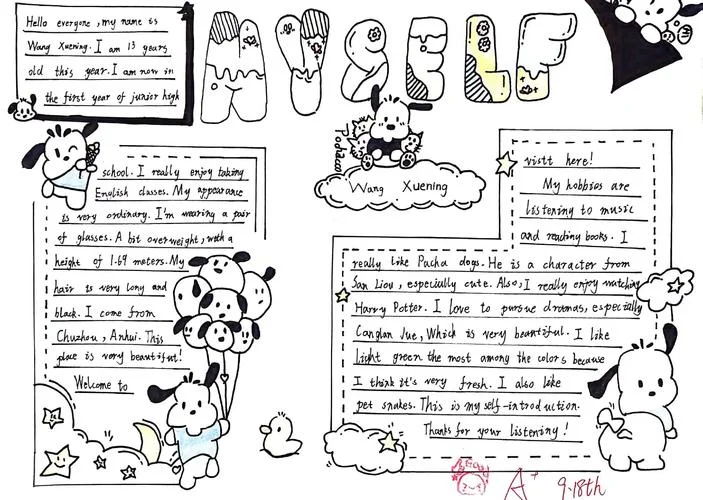 MYSELF
Hello everyone, my name is
Wang Xuening. I am 13 years
old this year. I am now in
the first year of junior high
school. I really enjoy taking
English classes. My appearance
is very ordinary. I'm wearing a pair
of glasses. A bit overweight, with a
height of 1.69 meters. My
hair is very long and
black. I come from
Chuzhou, Anhui. This
place is very beautiful!
Welcome to
Pochacco
Wang Xuening
visit here!
My hobbies are
listening to music
and reading books. I
really like Pacha dogs. He is a character from
San Liou, especially cute. Also, I really enjoy watching
Harry Potter. I love to pursue dramas, especially
Canglan Jue, Which is very beautiful. I like
light green the most among the colors because
I think it's very fresh. I also like
pet snakes. This is my self-introduction.
Thanks for your listening!
A+ 9.18th